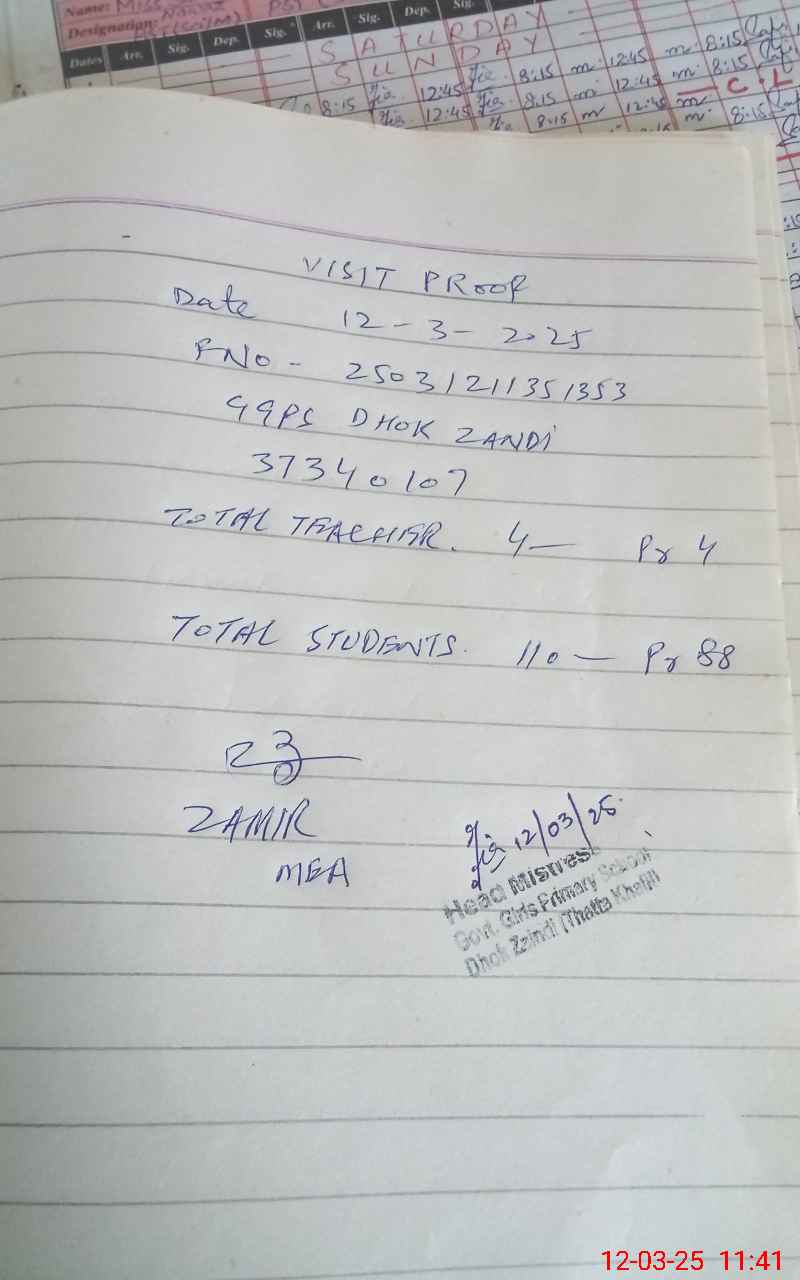 Name: MISS
Designation:
Dates Arr. Sig. Dep. Sig. Arr. Sig. Dep. Sig.
SATURDAY
SUNDAY
8:15 12:45 8:15 m 12:45 m 8:15
12:45 8:15 m 12:45 m 8:15
8:15 m 12:45 m C.L
VISIT PROOF
Date 12-3-2025
FNO - 25031211351353
GGPS DHOK ZANDi
37340107
TOTAL TEACHER. 4— Pr 4
TOTAL STUDENTS. 110 — Pr 88
ZAMIR
MEA
12/03/25
Head Mistress
Govt. Girls Primary School
Dhok Zaindi (Thatta Khalil)
12-03-25 11:41